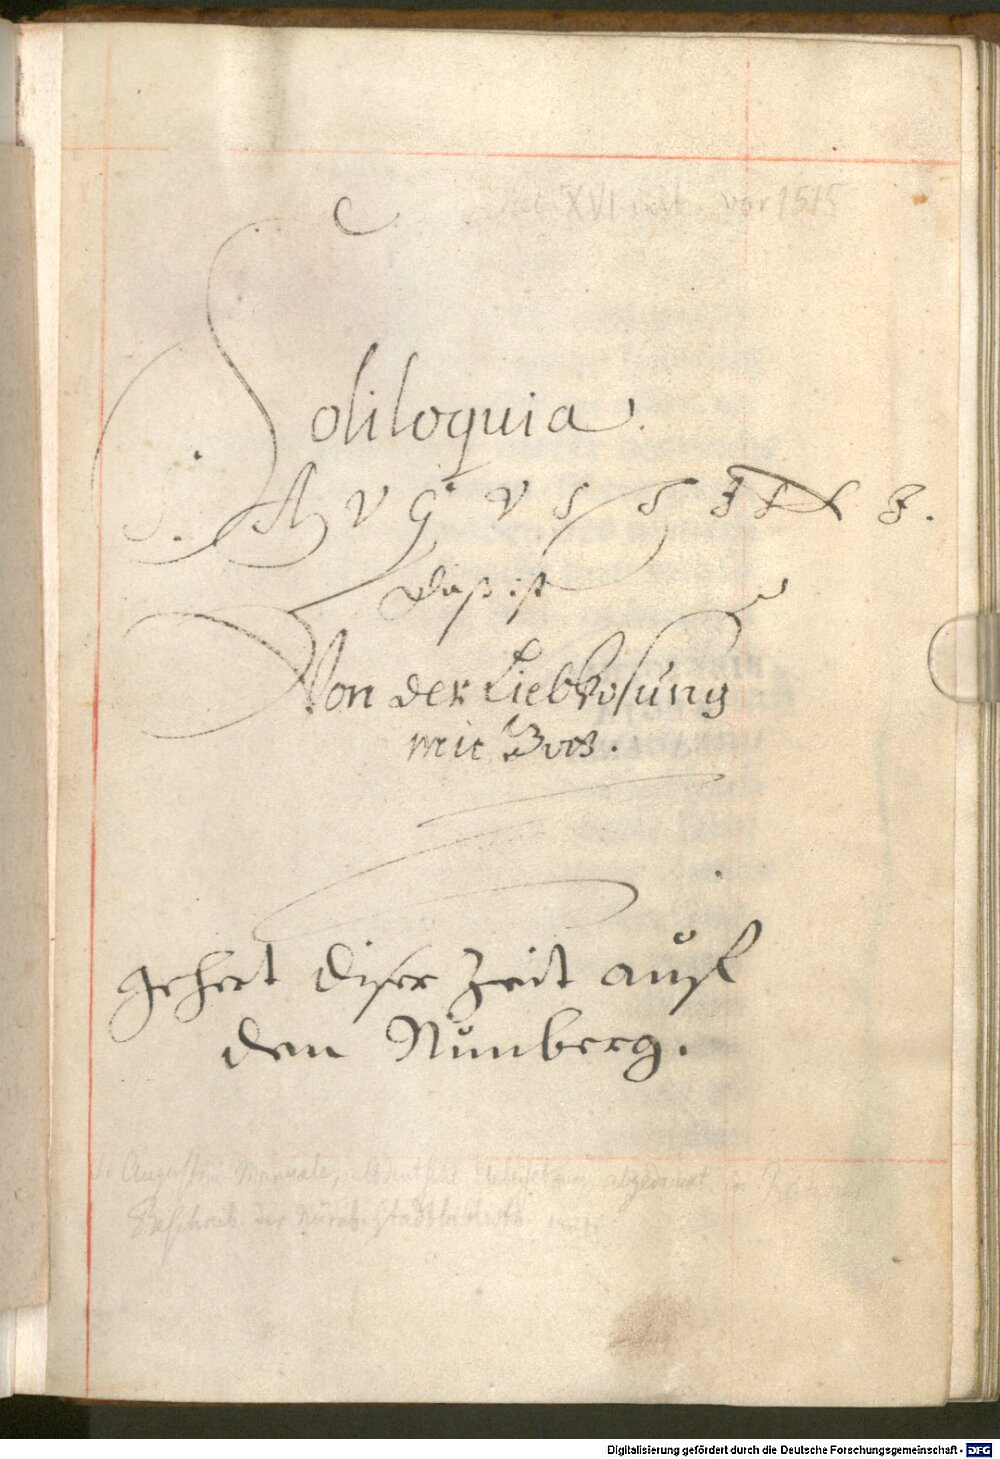 XVI vor 1515
Soliloquia.
S. AVGVSTINI.
Daß ist
Von der Liebkosung
mit Gott.
gehert diser Zeit auff
dem Nunberg.
Augustin Manuale, altdeutsche Uebersetzung, abgedruckt in
Beschreib. der Nürnb. Stadtbiblioth.
Digitalisierung gefördert durch die Deutsche Forschungsgemeinschaft - DFG